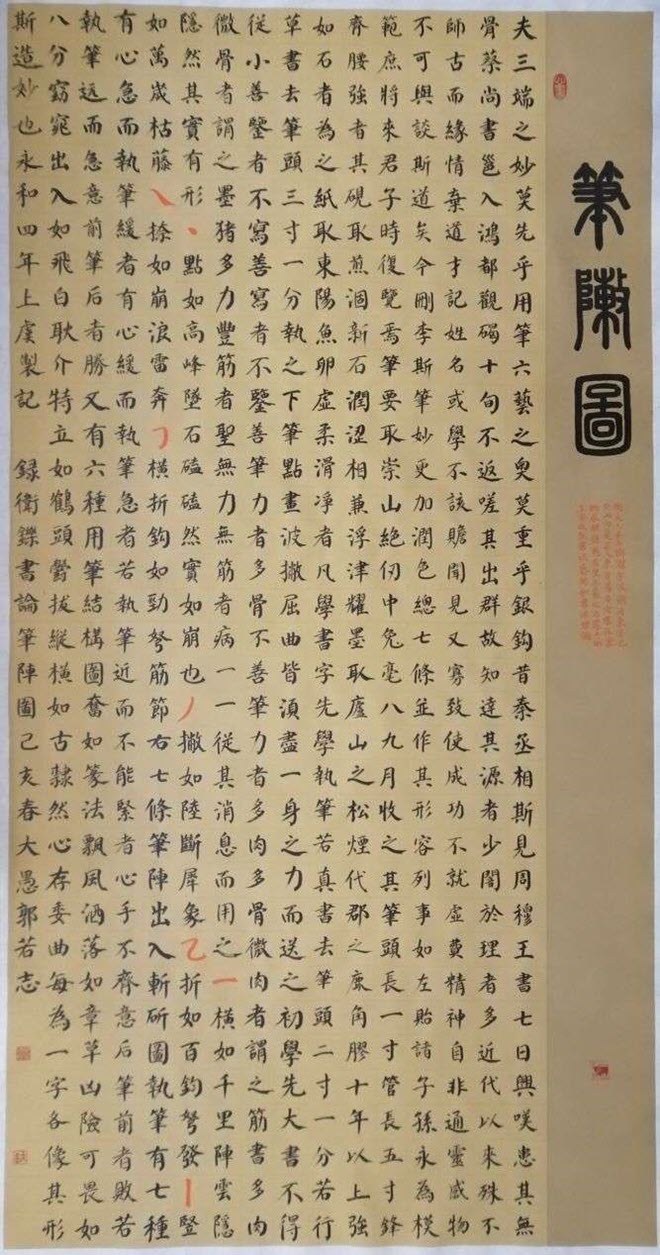 筆陳圖
夫三端之妙莫先乎用筆六藝之奧莫重乎銀鉤昔秦丞相斯見周穆王書七日興嘆患其無
骨蔡尚書邕入鴻都觀碣十旬不返嗟其出群故知達其源者少闇於理者多近代以來殊不
師古而緣情棄道才記姓名或學不該贍聞見又寡致使成功不就虛費精神自非通靈感物
不可與談斯道矣今刪李斯筆妙更加潤色總七條並作其形容列事如左貽諸子孫永為模
範庶將來君子時復覽焉筆要取崇山絕仞中兔毫八九月收之其筆頭長一寸管長五寸鋒
齊腰強者其硯取煎涸新石潤澀相兼浮津耀墨取廬山之松煙代郡之鹿角膠十年以上強
如石者為之紙取東陽魚卵虛柔滑淨者凡學書字先學執筆若真書去筆頭二寸一分若行
草書去筆頭三寸一分執之下筆點畫波撇屈曲皆湏盡一身之力而送之初學先大書不得
從小善鑒者不寫善寫者不鑒善筆力者多骨不善筆力者多肉多骨微肉者謂之筋書多肉
微骨者謂之墨猪多力豐筋者聖無力無筋者病一一從其消息而用之一橫如千里陣雲隱
隱然其實有形丶點如高峰墜石磕磕然實如崩也丿撇如陸斷犀象乙折如百鈞弩發丨豎
如萬歲枯藤乀捺如崩浪雷奔㇆橫折鉤如勁弩筋節右七條筆陣出入斬斫圖執筆有七種
有心急而執筆緩者有心緩而執筆急者若執筆近而不能緊者心手不齊意后筆前者敗若
執筆遠而急意前筆后者勝又有六種用筆結構圖奮如篆法飄風洒落如章草凶險可畏如
八分窈窕出入如飛白耿介特立如鶴頭鬱拔縱橫如古隸然心存委曲每為一字各像其形
斯造妙也永和四年上虞製記 録衛鑠書論筆陣圖己亥春大愚郭若志